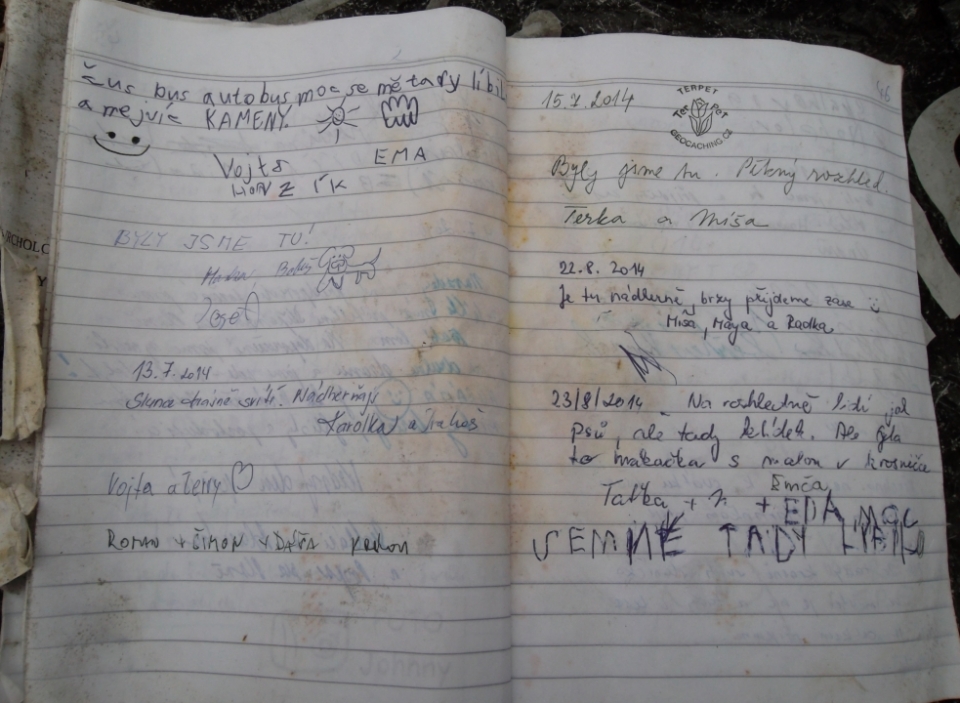 Čus bus autobus moc se mě tady líbil
a nejvíc KAMENY.
Vojta
EMA
BYLY JSME TU!
13.7.2014
Slunce strašně svítí. Nádherňají
Karolka a
Vojta a Terry
ROMAN + ŠIMON + DÁŠA
15.7.2014
TERPET
TerPeT
GEOCACHING CZ
Byly jsme tu. Pěkný rozhled.
Terka a Míša
22.8. 2014
Je tu nádherně, brzy přijdeme zase
Míša, Maya a Radka
23/8/2014 Na rozhledně lidí jak
psů, ale tady klídek. Ale byla
to makačka s malou v krosničce
Emča
Taťka + + EDA MOC
SEMI TADY LÍBILO